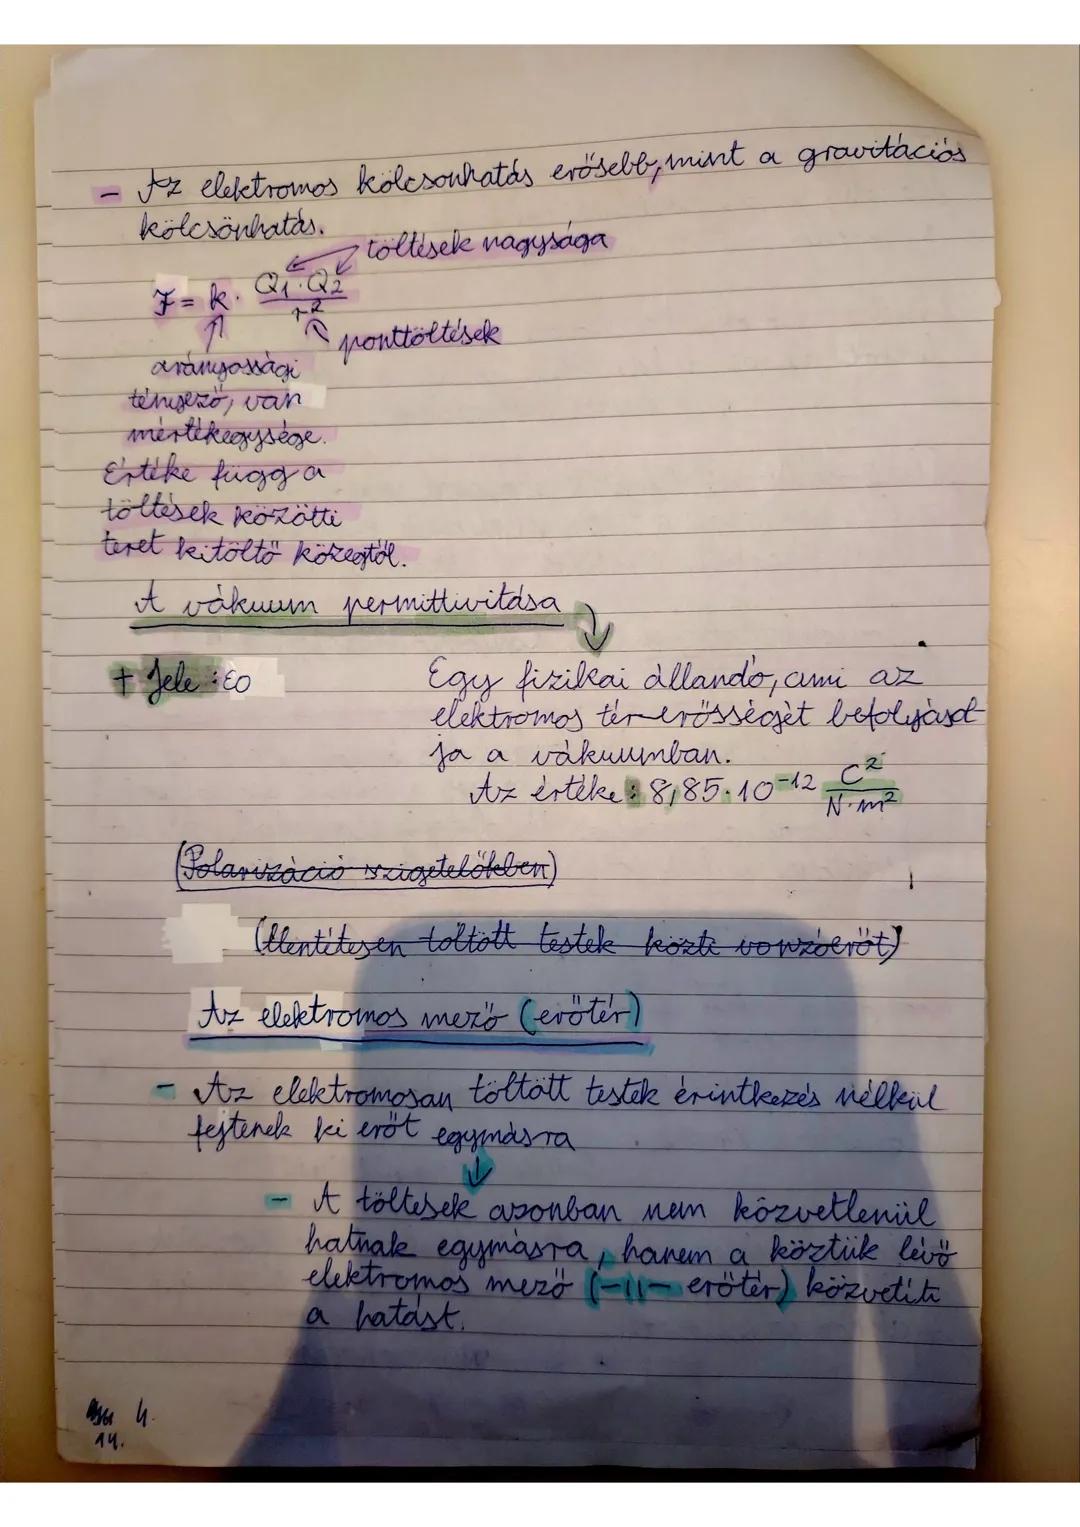 - Az elektromos kölcsönhatás erősebb, mint a gravitációs
kölcsönhatás.
töltések nagysága
F = k · Q1·Q2 / r²
ponttöltések
arányossági
tényező, van
mértékegysége.
Értéke függ a
töltések közötti
teret kitöltő közegtől.
A vákuum permittivitása
+ Jele : ε0
Egy fizikai állandó, ami az
elektromos tér erősségét befolyásol
ja a vákuumban.
Az értéke : 8,85·10⁻¹² C²/N·m²
(Polarizáció szigetelőkben)
(Ellentétesen töltött testek közti vonzóerőt)
Az elektromos mező (erőtér)
- Az elektromosan töltött testek érintkezés nélkül
fejtenek ki erőt egymásra
- A töltések azonban nem közvetlenül
hatnak egymásra, hanem a köztük lévő
elektromos mező (-11- erőtér) közvetíti
a hatást.
4.
14.